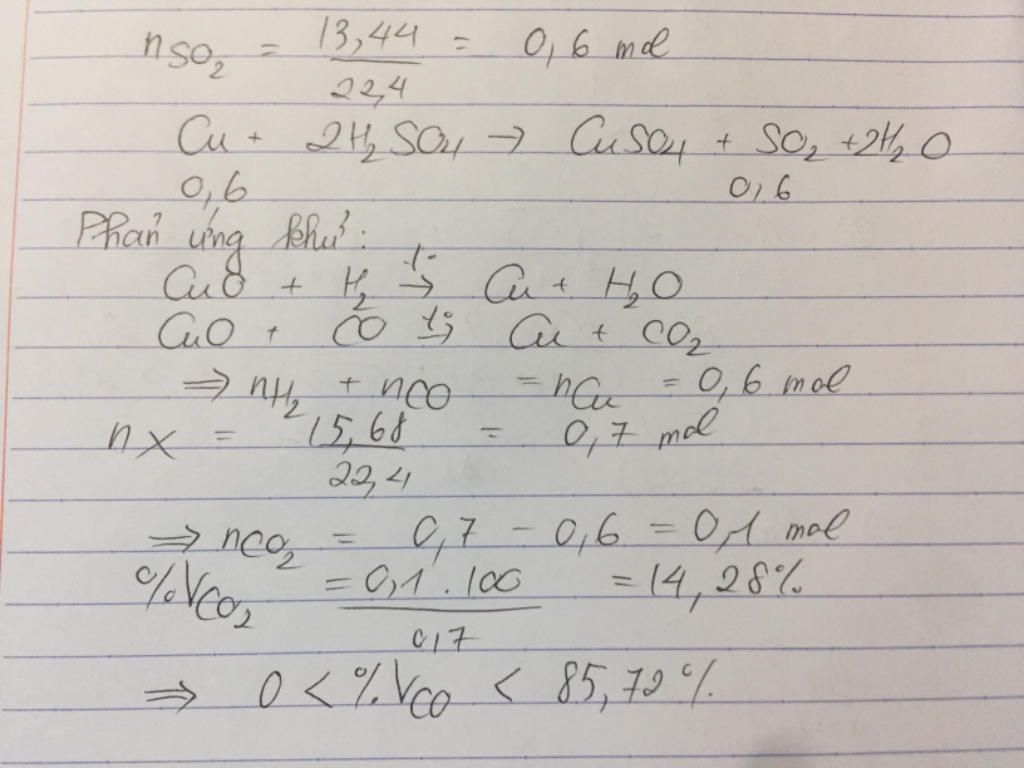 nSO₂ = 13,44 / 22,4 = 0,6 mol
Cu + 2H₂SO₄ → CuSO₄ + SO₂ + 2H₂O
0,6 0,6
Phản ứng khử:
CuO + H₂ t°→ Cu + H₂O
CuO + CO t°→ Cu + CO₂
⇒ nH₂ + nCO = nCu = 0,6 mol
nX = 15,68 / 22,4 = 0,7 mol
⇒ nCO₂ = 0,7 − 0,6 = 0,1 mol
%VCO₂ = 0,1.100 / 0,7 = 14,28%
⇒ 0 < %VCO < 85,72%